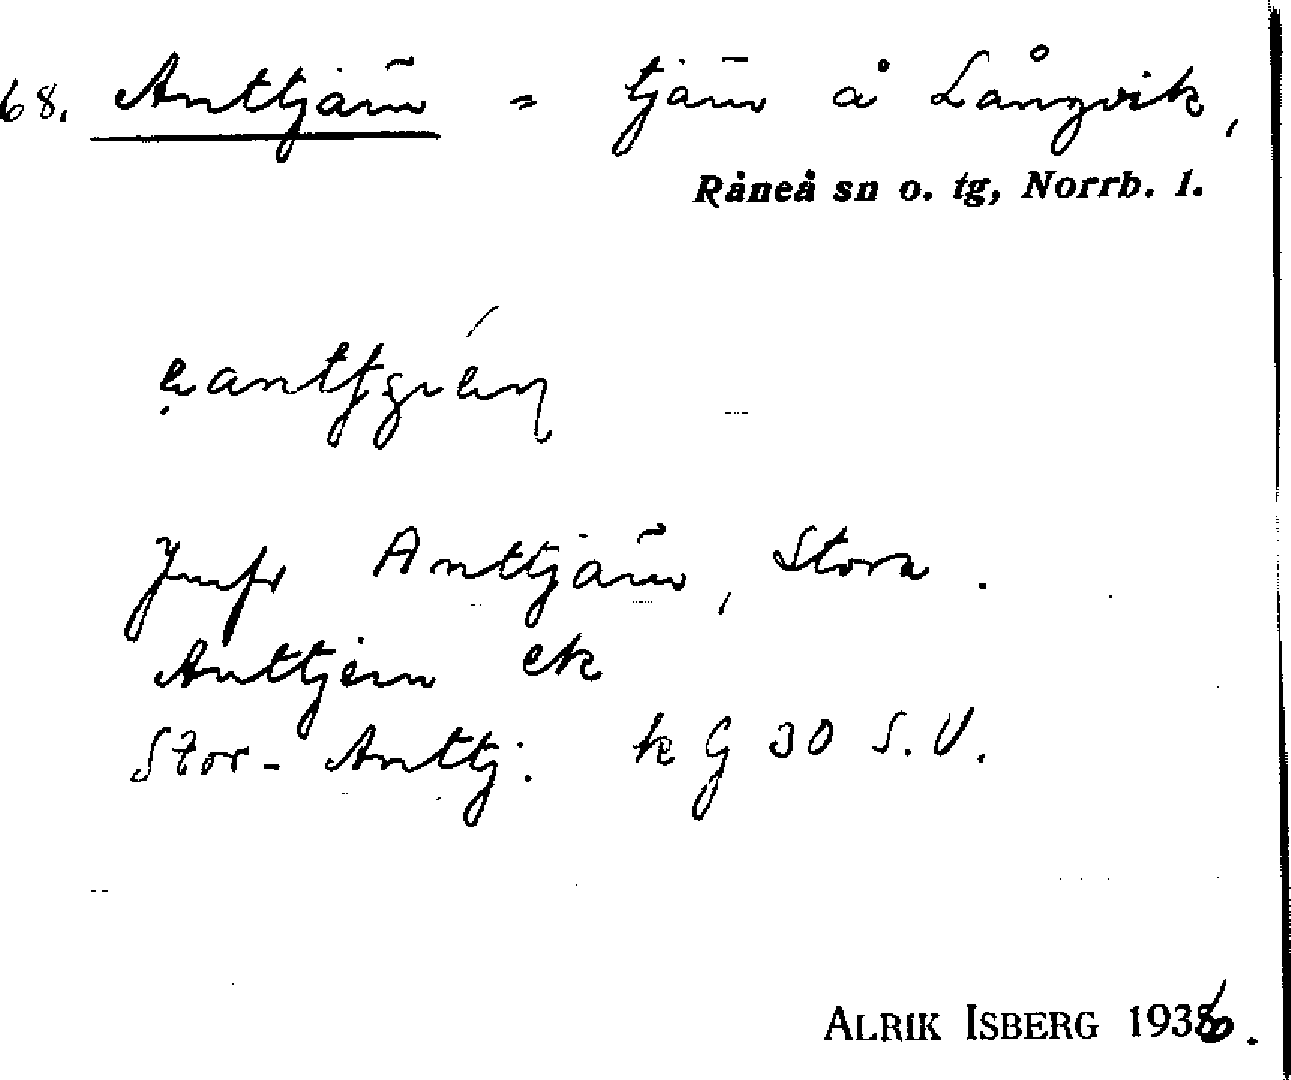 68. Anttjärn = tjärn å Långvik,
Råneå sn o. tg, Norrb. l.
Jmfr Anttjärn, Stora.
Anttjern ek
Stor-Anttj: k G 30 S.V.
ALRIK ISBERG 1936.